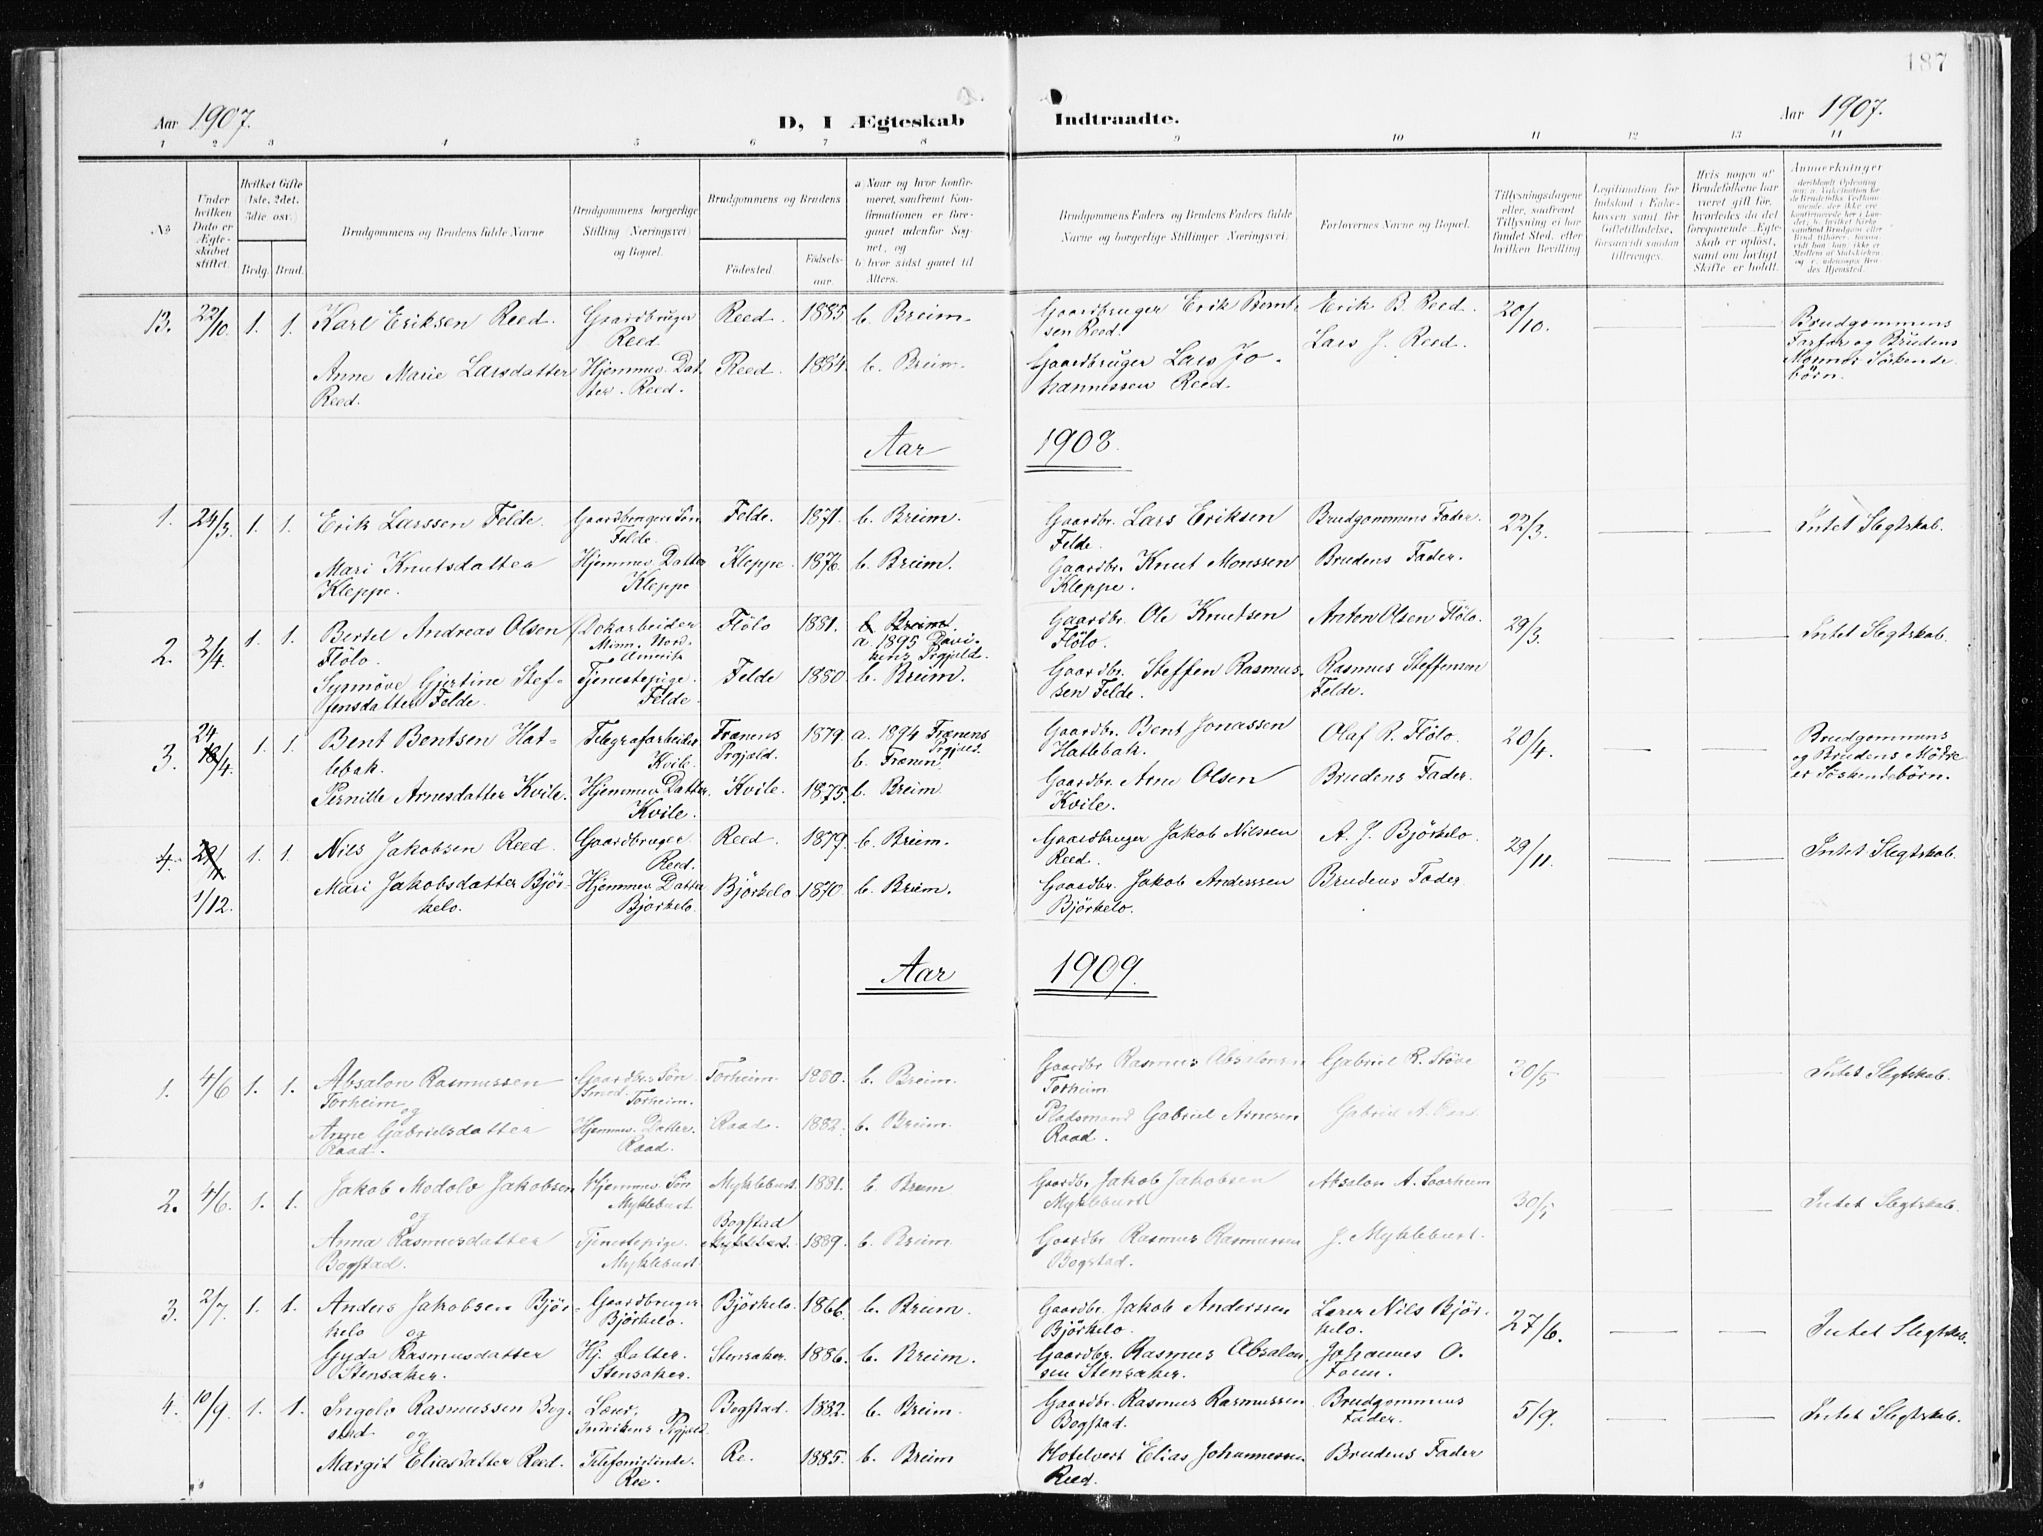 187
Aar 1907.
D, I Ægteskab
Indtraadte.
Aar 1907.
1 2 3 4 5 6 7 8 9 10 11 12 13 14
No
Under hvilken Dato er Ægteskabet stiftet.
Hvilket Gifte (1ste, 2det, 3die osv.)
Brdg. Brud.
Brudgommens og Brudens fulde Navne
Brudgommens borgerlige Stilling (Næringsvei) og Bopæl.
Brudgommens og Brudens
Fødested
Fødselsaar.
a) Naar og hvor konfirmeret, saafremt Konfirmationen er foregaaet udenfor Sognet, og
b) hvor sidst gaaet til Alters.
Brudgommens Faders og Brudens Faders fulde Navne og borgerlige Stillinger (Næringsvei).
Forlovernes Navne og Bopæl.
Tillysningsdagene eller, saafremt Tillysning ei har fundet Sted, efter hvilken Bevilling
Legitimation for Indskud i Enkekassen samt for Giftetilladelse, forsaavidt saadan tiltrænges.
Hvis nogen af Brudefolkene har været gift før, hvorledes da det foregaaende Ægteskab er opløst, samt om lovligt Skifte er holdt.
Anmærkninger
13. 22/10 1. 1. Karl Eriksen Reed. Gaardbruger Reed Reed. 1885 b. Breim. Gaardbruger Erik Berntsen Reed. Erik B. Reed. 20/10. Brudgommens Farfar og Brudens Mormor Søskendebørn.
Anne Marie Larsdatter Reed. Hjemmev. Datter. Reed. Reed. 1884. b. Breim. Gaardbruger Lars Johannessen Reed. Lars J. Reed.
Aar 1908.
1. 24/3. 1. 1. Erik Larssen Felde. Gaardbrugers Søn Felde. Felde. 1871. b. Breim. Gaardbr. Lars Eriksen Felde. Brudgommens Fader. 22/3. Intet Slegtskab.
Mari Knutsdatter Kleppe. Hjemmev. Datter Kleppe Kleppe. 1876. b. Breim. Gaardbr. Knut Monssen Kleppe. Brudens Fader.
2. 2/4. 1. 1. Bertel Andreas Olsen Flölo. Minn. Nord-Amerika Flölo 1881. b. Breim. a. 1895 Davikens Prgjæld. Gaardbr. Ole Knutsen Flölo. Anton Olsen Flölo. 29/3. Intet Slegtskab.
Synnöve Gjertine Steffensdatter Felde. Tjenestepige. Felde. Felde 1880. b. Breim. Gaardbr. Steffen Rasmussen Felde. Rasmus Steffensen Felde.
3. 24 18/4. 1. 1. Bent Bentsen Hatlebak. Telegrafarbeider Kvile. Frænens Prgjæld. 1879. a. 1894 Frænens Prgjæld. b. Frænen. Gaardbr. Bent Jonassen Hatlebak. Olaf R. Flölo. 20/4. Brudgommens og Brudens Mödre er Söskendebörn.
Pernille Arnesdatter Kvile. Hjemmev. Datter. Kvile. Kvile. 1875. b. Breim Gaardbr. Arne Olsen Kvile. Brudens Fader.
4. 29/11 1/12. 1. 1. Nils Jakobsen Reed. Gaardbruger Reed. Reed. 1879. b. Breim. Gaardbruger Jakob Nilssen Reed. A. J. Björkelo. 29/11. Intet Slegtskab.
Mari Jakobsdatter Björkelo. Hjemmev. Datter Björkelo. Björkelo 1870. b. Breim. Gaardbr. Jakob Anderssen Björkelo. Brudens Fader.
Aar 1909.
1. 4/6 1. 1. Absalon Rasmussen Torheim og Gaardbr. Søn Smed. Torheim. Torheim. 1880. b. Breim. Gaardbr Rasmus Absalonsen Torheim Gabriel R. Støve 30/5 Intet Slegtskab.
Anne Gabrielsdatter Raad. Hjemmev. Datter. Raad. Raad. 1882. b. Breim. Pladsmand Gabriel Arnesen Raad. Gabriel A.
2. 4/6. 1. 1. Jakob Modolv Jakobsen og Hjemmev. Søn Myklebust Myklebust. 1881. b. Breim Gaardbr. Jakob Jakobsen Myklebust Absalon A. Soorheim 30/5 Intet Slegtskab.
Anna Rasmusdatter Bogstad. Tjenestepige. Myklebust Bogstad Myklebust. 1889. b. Breim Gaardbr. Rasmus Rasmussen Bogstad. J. Myklebust.
3. 2/7. 1. 1. Anders Jakobsen Björkelo og Gaardbruger Björkelo. Björkelo. 1866. b. Breim. Gaardbr. Jakob Anderssen Björkelo. Lærer Nils Björkelo. 27/6. Intet Slegtskab.
Gyda Rasmusdatter Stensaker. Hj. Datter. Stensaker. Stensaker. 1886. b. Breim. Gaardbr. Rasmus Absalonsen Stensaker. Johannes O. Foen.
4. 10/9. 1. 1. Ingolv Rasmussen Bogstad og Lærer, Indvikens Prgjæld. Bogstad. 1882. b. Breim. Gaardbr. Rasmus Rasmussen Bogstad. Brudgommens Fader. 5/9. Intet Slegtskab.
Margit Eliasdatter Reed. Telefonistinde. Ree. Re. 1885. b. Breim Hotelvert Elias Johannessen Reed. Brudens Fader